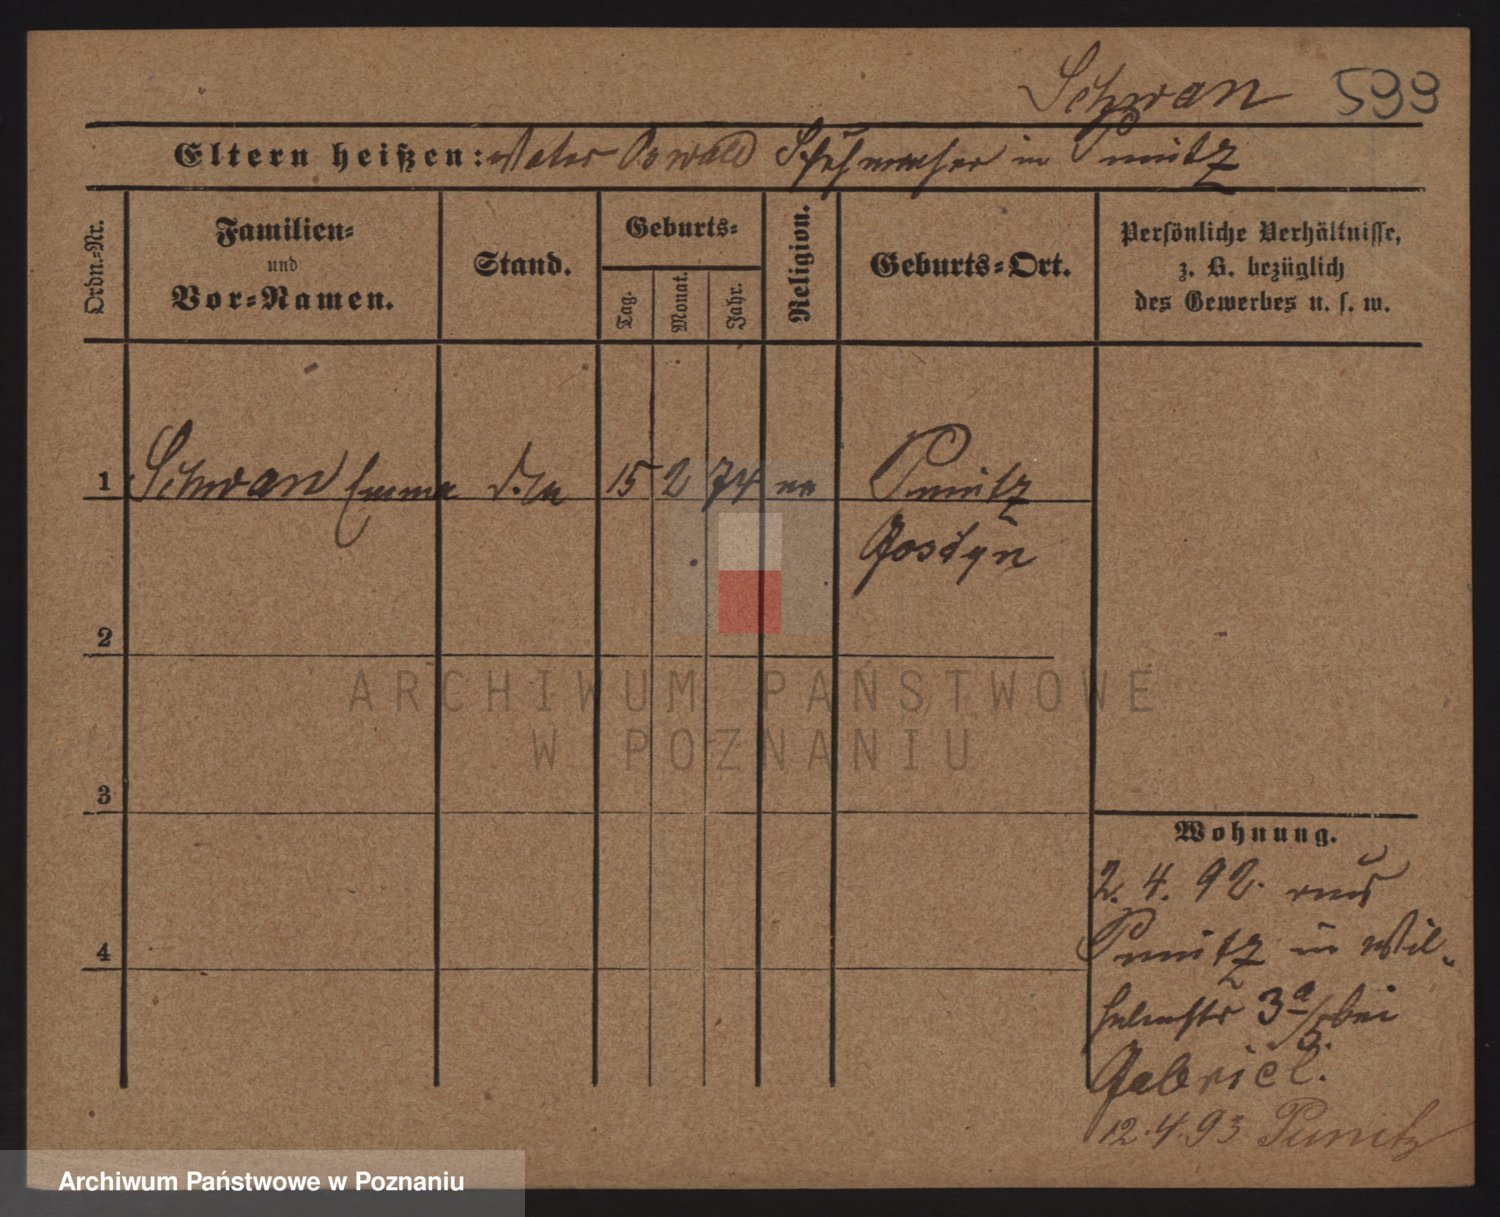 Schwan 599
Eltern heißen: Vater Oswald Schuhmacher in Punitz
Ordn.-Nr.
Familien-
und
Vor-Namen.
Stand.
Geburts-
Tag.
Monat.
Jahr.
Religion.
Geburts-Ort.
Persönliche Verhältnisse,
z. B. bezüglich
des Gewerbes u. s. w.
1 Schwan Emma 15 2 74 Punitz
Gostyn
2
3
4
ARCHIWUM PAŃSTWOWE
W POZNANIU
Wohnung.
2. 4. 92. aus
Punitz in Wil-
helmstr 3a/5. bei
Gabriel.
12.4.93 Punitz
Archiwum Państwowe w Poznaniu